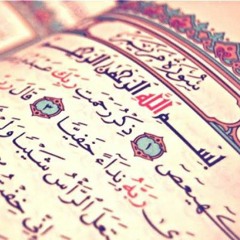 سُورَةُ مَرْيَمَ
بِسْمِ اللَّهِ الرَّحْمَٰنِ الرَّحِيمِ
هيعص ١ ذِكْرُ رَحْمَتِ رَبِّكَ
رَبَّهُ نِدَاءً خَفِيًّا ٣ قَالَ
الرَّأْسُ شَيْبًا